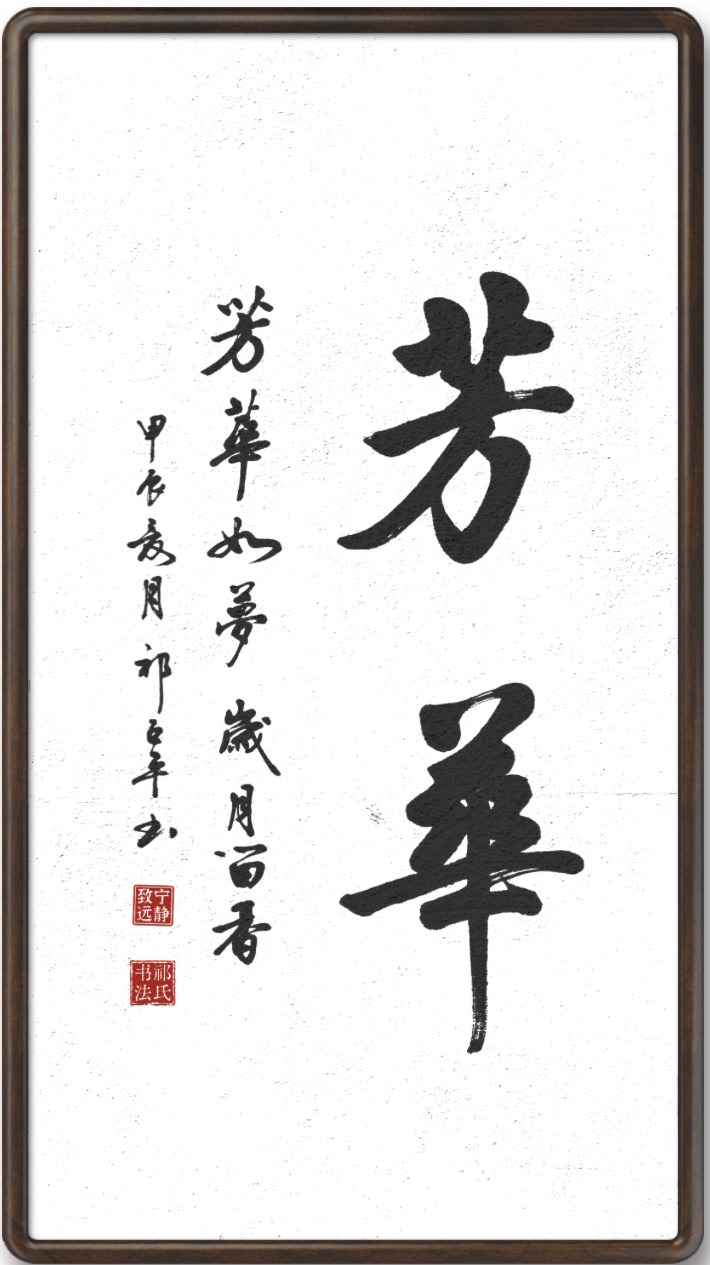 芳華
芳華如夢 歲月留香
甲辰夏月 祁云平书
宁静致远
祁氏书法